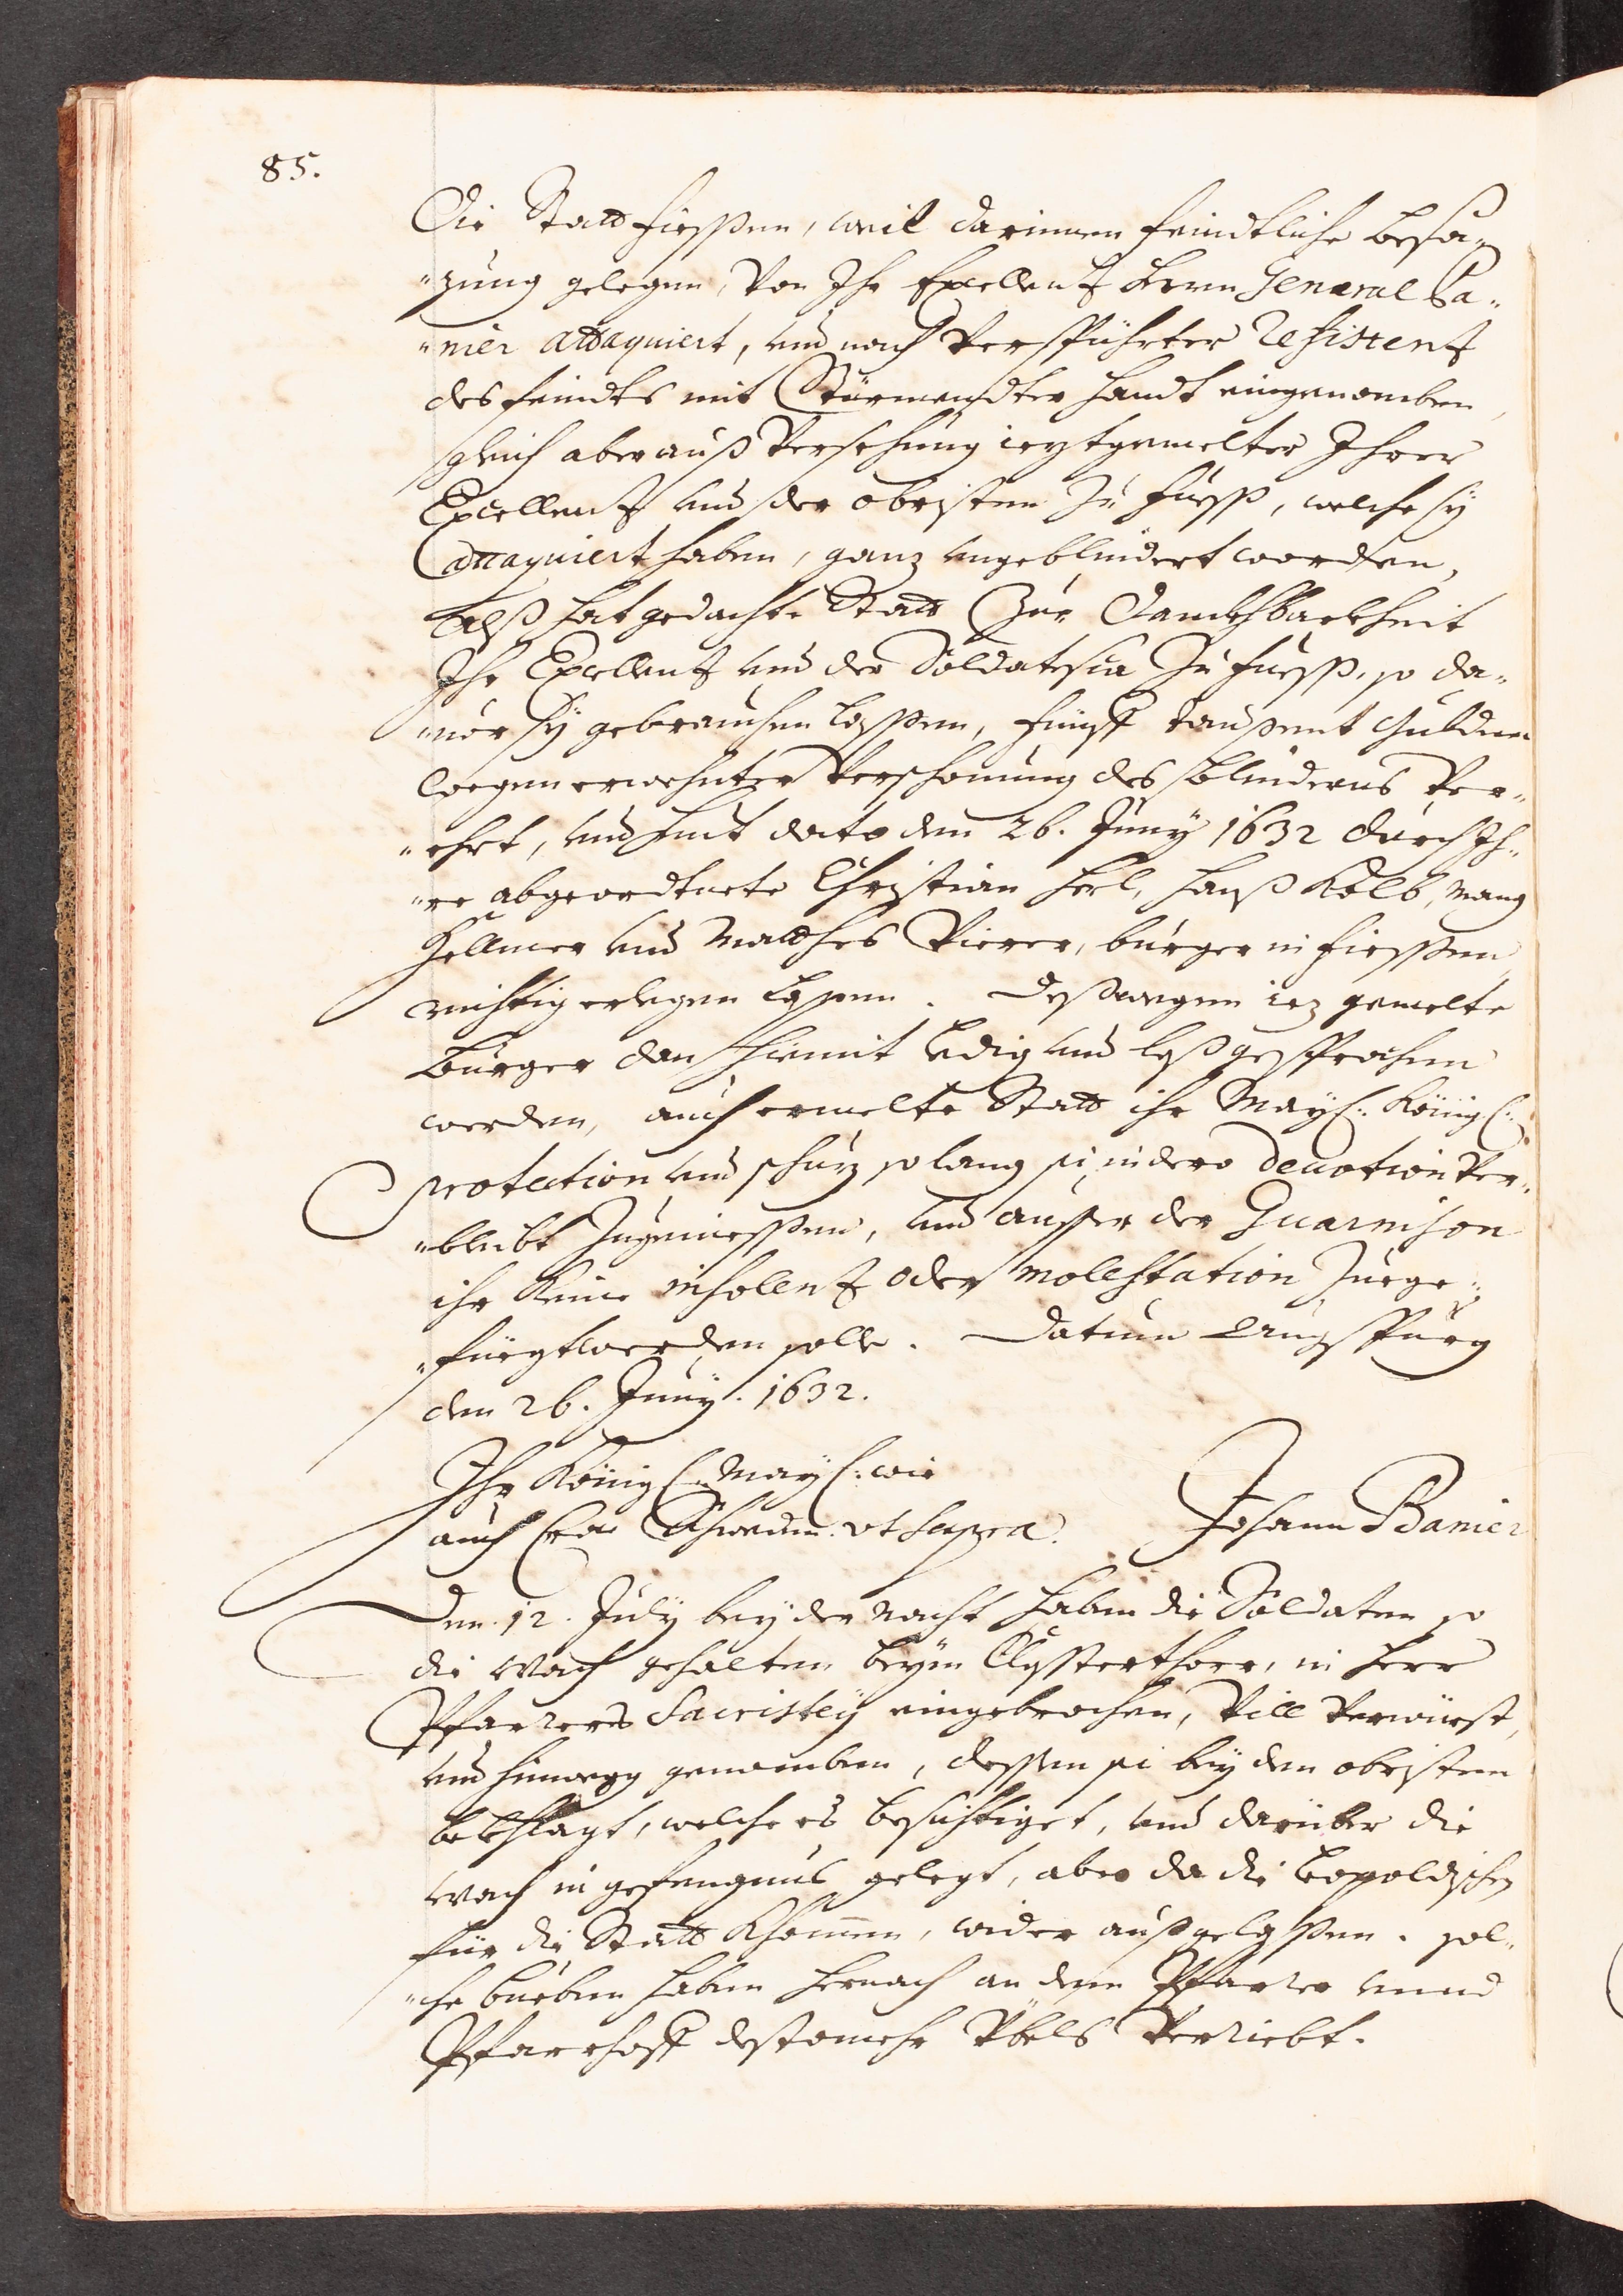 85.
Die Statt Fiessen, weil darinnen feindtliche Besa-
-zung gelegen, von Ihr Excellentz Herrn General Ba-
-nier attaquiert, und nach verspührter Resistentz
des feindts mit Stürmendter handt eingenomben,
gleich aber auß Versehung ieztgemelter Ihrer
Excellentz und der obristen zu fuess, welche sy
attaquiert haben, ganz ungeblindert worden,
Alß hat gedachte Statt zur Danckhbarkheit
Ihr Excellentz und der Soldatesca zu fuess, so da-
-uor sy gebrauchen lassen, fünff taußent Gulden
wegen erwehnter Verschonung des Blinderns Ver-
-ehrt, und heut dato den 26. Juny 1632 durch Ih-
-re abgeordtnete Christian Herl, Hanß Kolb, Mang
Hellmer und Matthes Vierer, burger in Fiessen,
richtig erlegen lassen. Deßwegen iez gemelte
Burger dan hiemit ledig und loßgesprochen
werden, auch ermelte Statt ihr May: König:
protection und schuz so lang si in dero deuotion Ver-
-bleibt zugeniessen, und ausser der Guarnison
ihr keine insolentz oder molestation zuege-
-füegt werden solle. Datum Augspurg
den 26. Juny. 1632.
Ihr König: May: wie
auch Cron Schweden. vt supra. Johann Banier
Den 12. July bey der Nacht haben die Soldaten so
die Wach gehalten beym Closterthor, in Herr
Pfarrers Sacristey eingebrochen, Vill Verwüest,
und hinwegg genomben, dessen si bey den obristen
bekhlagt, welche es besichtiget, und darüber die
Wach in gefengnus gelegt, aber da die Leopoldischen
für die Statt Khomen, wider außgelassen. sol-
-che bueben haben hernach an dem Pfarrer unnd
Pfarrhoff destomehr Vbels Veriebt.